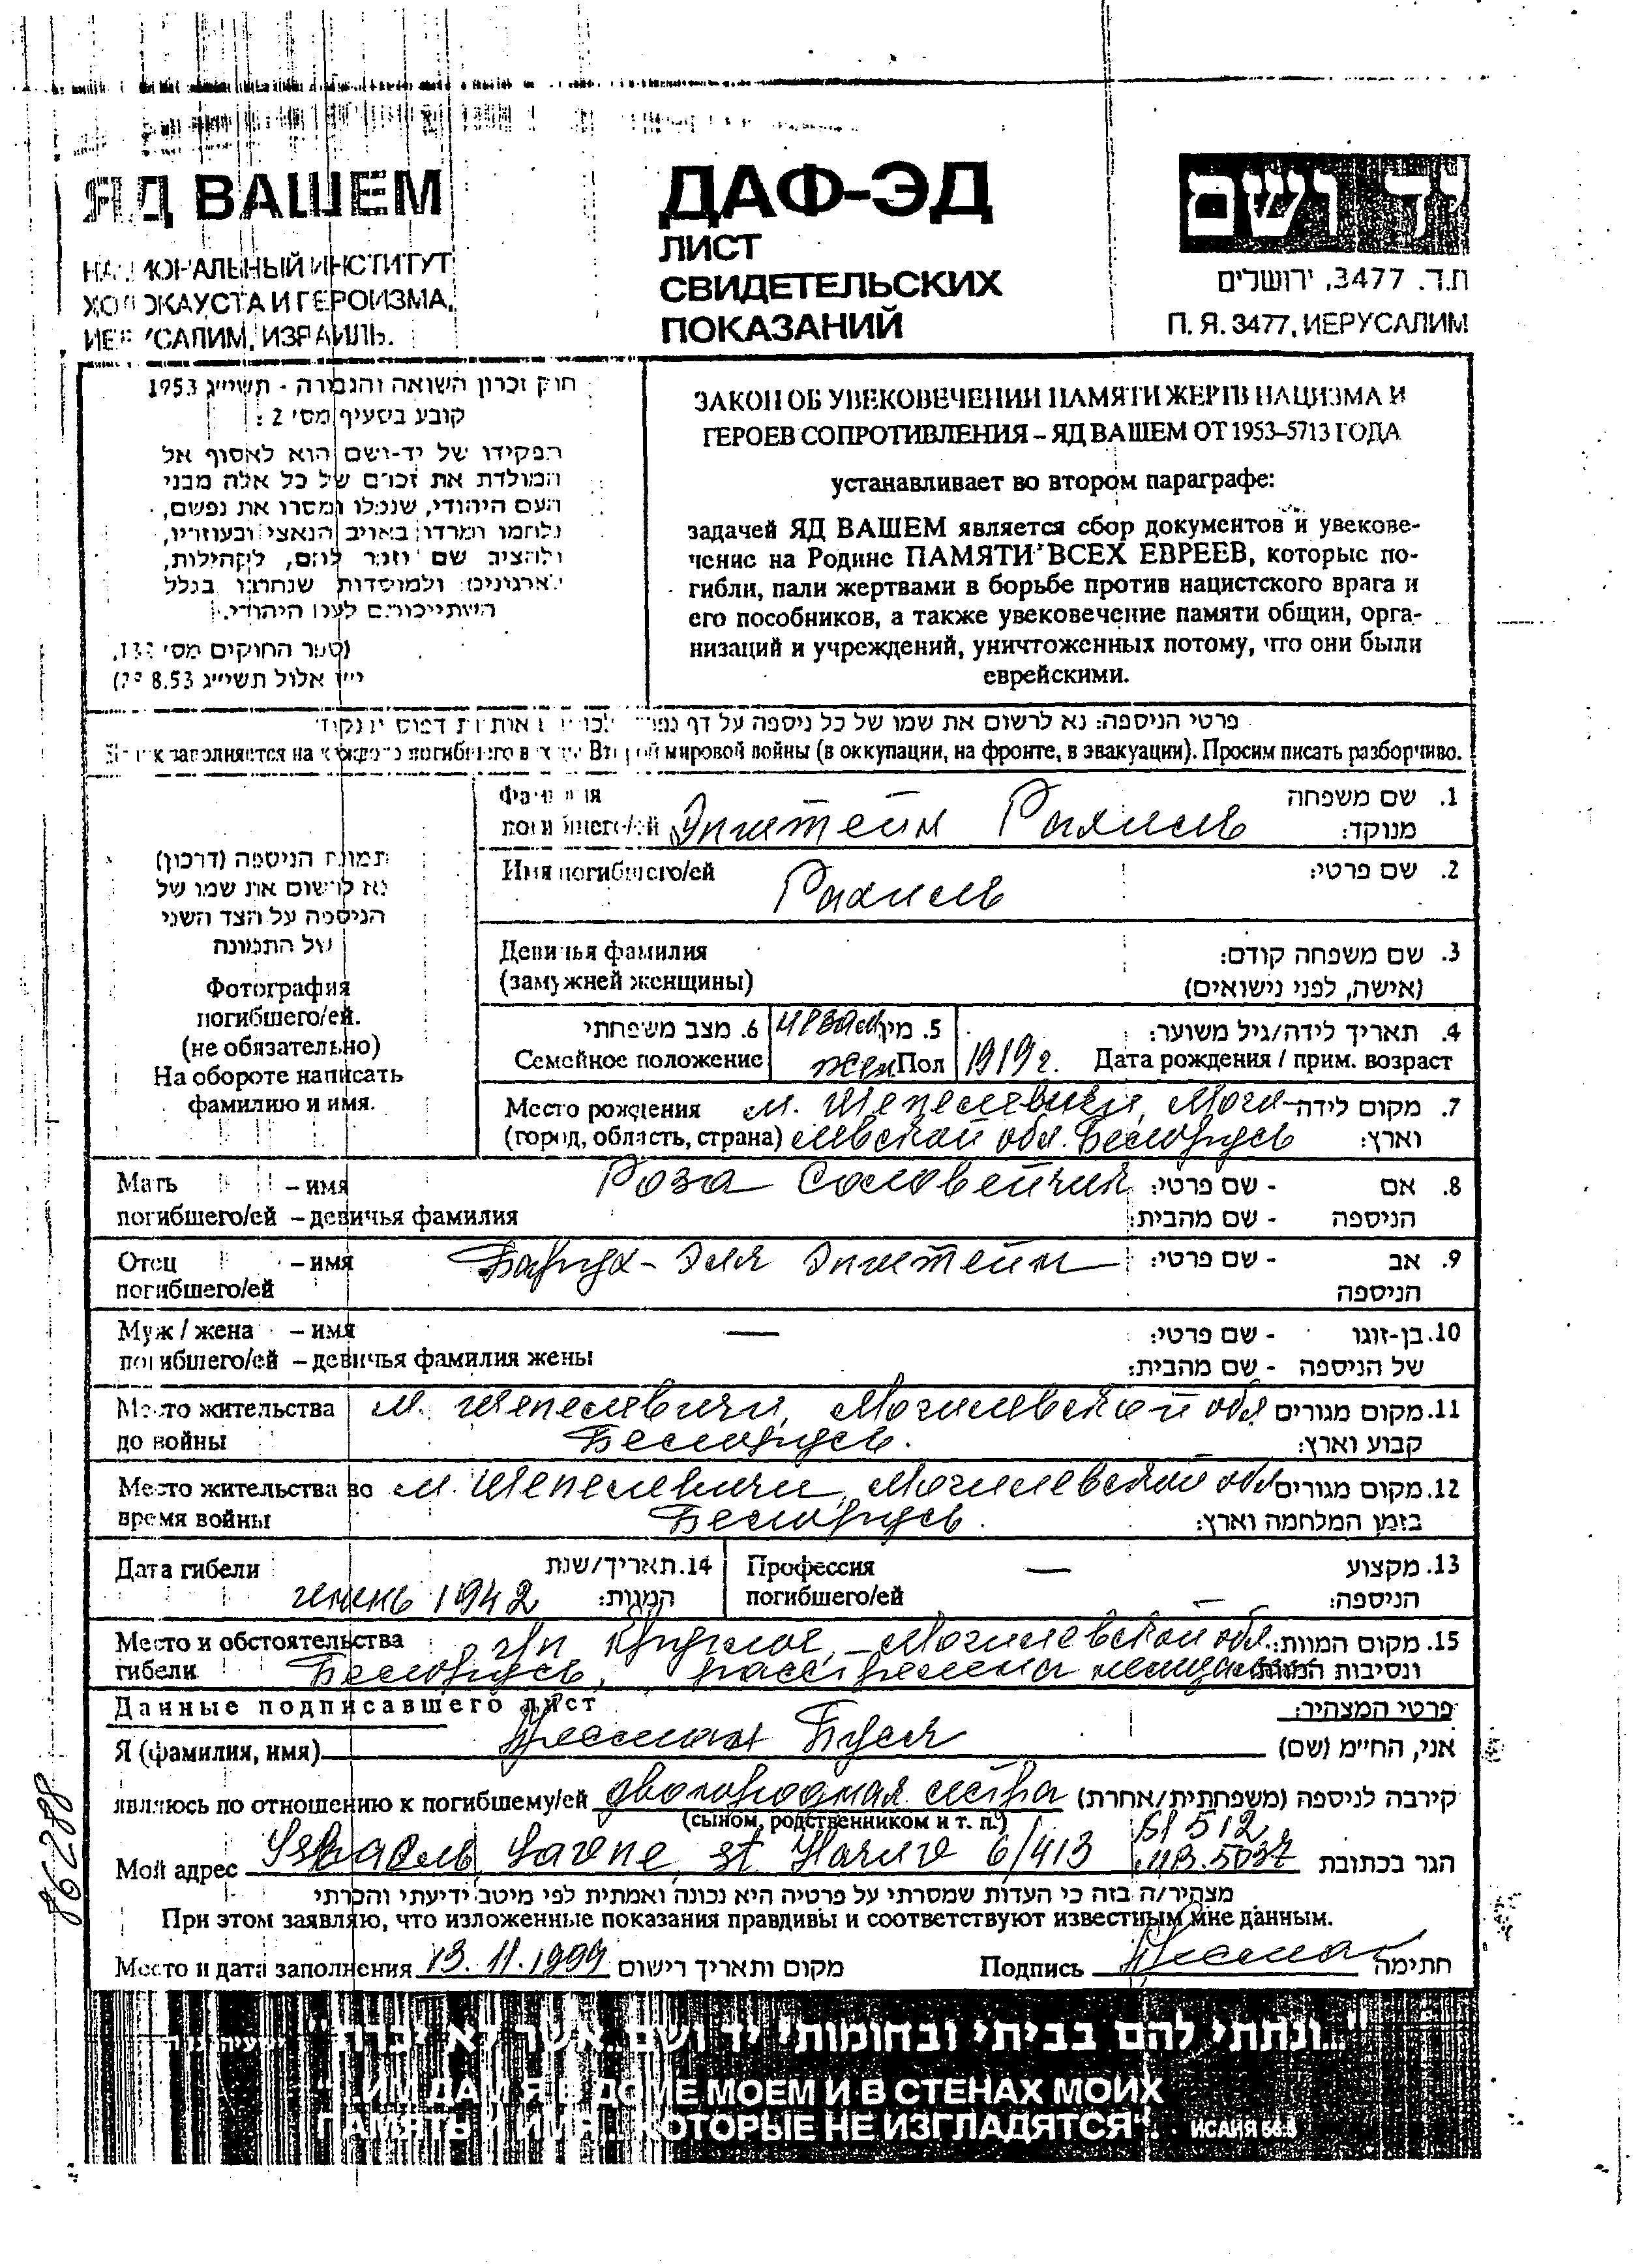 ЯД ВАШЕМ
НАЦИОНАЛЬНЫЙ ИНСТИТУТ
ХОЛОКАУСТА И ГЕРОИЗМА,
ИЕРУСАЛИМ, ИЗРАИЛЬ.
ДАФ-ЭД
ЛИСТ
СВИДЕТЕЛЬСКИХ
ПОКАЗАНИЙ
יד ושם
ת.ד. 3477, ירושלים
П. Я. 3477, ИЕРУСАЛИМ
חוק זכרון השואה והגבורה - תשי״ג 1953
קובע בסעיף מס׳ 2 :
תפקידו של יד-ושם הוא לאסוף אל
המולדת את זכרם של כל אלה מבני
העם היהודי, שנפלו ומסרו את נפשם,
נלחמו ומרדו באויב הנאצי ובעוזריו,
ולהציב שם וזכר להם, לקהילות,
לארגונים ולמוסדות שנחרבו בגלל
השתייכותם לעם היהודי.
(ספר החוקים מס׳ 132,
י״ז אלול תשי״ג 28.8.53)
ЗАКОН ОБ УВЕКОВЕЧЕНИИ ПАМЯТИ ЖЕРТВ НАЦИЗМА И
ГЕРОЕВ СОПРОТИВЛЕНИЯ – ЯД ВАШЕМ ОТ 1953–5713 ГОДА
устанавливает во втором параграфе:
задачей ЯД ВАШЕМ является сбор документов и увекове-
чение на Родине ПАМЯТИ ВСЕХ ЕВРЕЕВ, которые по-
гибли, пали жертвами в борьбе против нацистского врага и
его пособников, а также увековечение памяти общин, орга-
низаций и учреждений, уничтоженных потому, что они были
еврейскими.
פרטי הניספה: נא לרשום את שמו של כל ניספה על דף נפרד, באותיות דפוס
заполняется на каждого погибшего в ходе Второй мировой войны (в оккупации, на фронте, в эвакуации). Просим писать разборчиво.
תמונת הניספה (דרכון)
נא לרשום את שמו של
הניספה על הצד השני
של התמונה
Фотография
погибшего/ей.
(не обязательно)
На обороте написать
фамилию и имя.
Фамилия погибшего/ей Эпштейн Рахиль 1. שם משפחה מנוקד:
Имя погибшего/ей Рахиль 2. שם פרטי:
Девичья фамилия 3. שם משפחה קודם:
(замужней женщины) (אישה, לפני נישואים)
6. מצב משפחתי 5. מין 4. תאריך לידה/גיל משוער:
Семейное положение жен Пол 1919 г. Дата рождения / прим. возраст
Место рождения м. Шепелевичи, Моги- 7. מקום לידה
(город, область, страна) левской обл. Беларусь וארץ:
Мать – имя Роза Соловейчик 8. אם - שם פרטי:
погибшего/ей – девичья фамилия הניספה - שם מהבית:
Отец – имя Барух-Эля Эпштейн 9. אב - שם פרטי:
погибшего/ей הניספה
Муж / жена – имя — 10. בן-זוגו - שם פרטי:
погибшего/ей – девичья фамилия жены של הניספה - שם מהבית:
Место жительства м. Шепелевичи, Могилевской обл 11. מקום מגורים
до войны Беларусь. קבוע וארץ:
Место жительства во м. Шепелевичи, Могилевской обл 12. מקום מגורים
время войны Беларусь. בזמן המלחמה וארץ:
Дата гибели 14. תאריך/שנת Профессия — 13. מקצוע
июнь 1942 המוות: погибшего/ей — הניספה:
Место и обстоятельства г/п Круглое, – Могилевской обл. 15. מקום המוות:
гибели Беларусь, расстреляна немцами ונסיבות המוות
Данные подписавшего лист פרטי המצהיר:
Я (фамилия, имя) Буся אני, החיימ (שם)
являюсь по отношению к погибшему/ей двоюродная сестра קירבה לניספה (משפחתית/אחרת)
(сыном, родственником и т. п.)
61512
Мой адрес Израель, Yavne, st 6/413 הגר בכתובת
מצהיר/ה בזה כי העדות שמסרתי על פרטיה היא נכונה ואמתית לפי מיטב ידיעתי והכרתי
При этом заявляю, что изложенные показания правдивы и соответствуют известным мне данным.
Место и дата заполнения 13.11.1999 מקום ותאריך רישום Подпись חתימה
86288
"...ונתתי להם בביתי ובחומותי יד ושם אשר לא יכרת"
"...ИМ ДАМ Я В ДОМЕ МОЕМ И В СТЕНАХ МОИХ
ПАМЯТЬ И ИМЯ... КОТОРЫЕ НЕ ИЗГЛАДЯТСЯ". ИСАИЯ 56:5